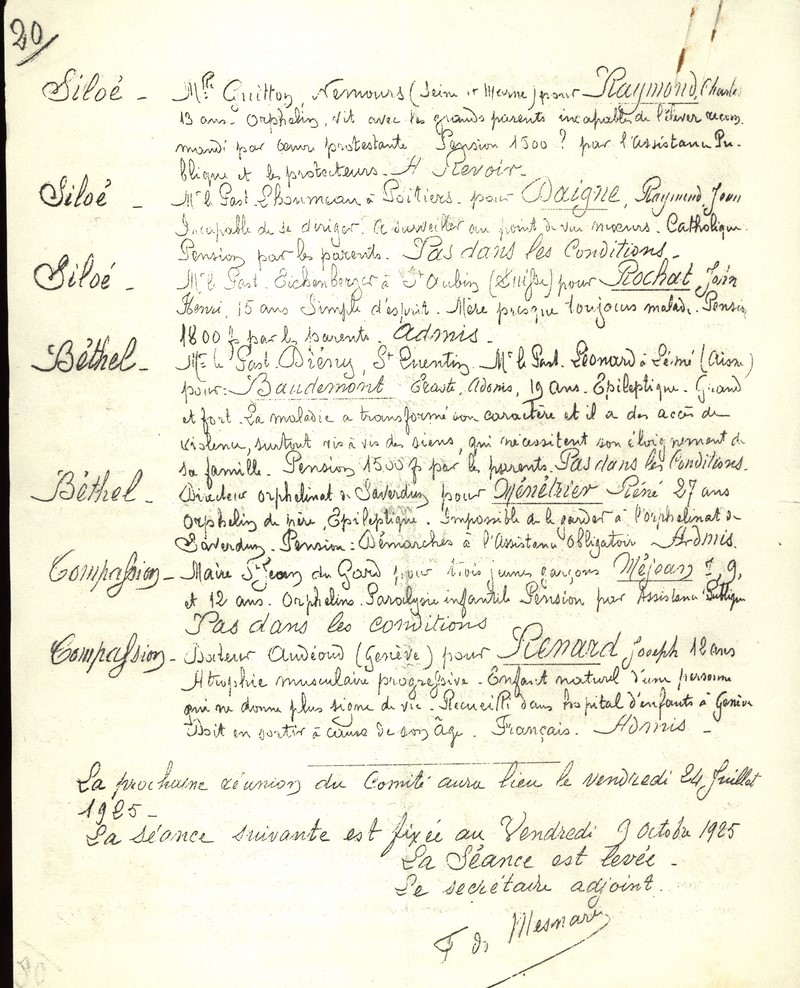 20
Siloé - Mme Guitton, Nemours (Seine et Marne) pour Raymond, Charles
13 ans. Orphelin, vit avec les grands parents incapables de l'élever recom
mandé par œuvre protestante Pension 1500 ? par l'Assistance Pu-
blique et les protecteurs. A Revoir.
Siloé - Mr le Past. Lhoumeau à Poitiers. pour Daigne, Raymond, Jean
Incapable de se diriger. A surveiller au point de vue mœurs. Catholique.
Pension par les parents. Pas dans les Conditions.
Siloé - Mr le Past. Eichenberger à St Aubin (Suisse) pour Rochat Jean
Henri, 15 ans Simple d'esprit. Mère presque toujours malade. Pension
1800 f par les parents. Admis.
Béthel - Mr le Past. Drény, St Quentin. Mr le Past. Léonard à Lémé (Aisne)
pour: Baudemont Eraste, Adonis, 19 ans. Epileptique. Grand
et fort. La maladie a transformé son caractère et il a des accès de
violence, surtout vis à vis des siens, qui nécessitent son éloignement de
sa famille. Pension 1500 f par les parents. Pas dans les Conditions.
Béthel - Directeur orphelinat de Saverdun pour Ménétrier Réné 27 ans
Orphelin de père, Epileptique. Impossible de le garder à l'orphelinat de
Saverdun. Pension: Démarches à l'Assistance Obligatoire Admis.
Compassion - Maire St Jean du Gard pour trois jeunes garçons Méjean 7, 9,
et 12 ans. Orphelins. Paralysie infantile Pension par Assistance Publique
Pas dans les conditions
Compassion - Docteur Audéoud (Genève) pour Renard Joseph 12 ans
Atrophie musculaire progressive. Enfant naturel d'une personne
qui ne donne plus signe de vie. Recueilli dans hospital d'enfants à Genève
Doit en sortir à cause de son âge. Français. Admis -
La prochaine réunion du Comité aura lieu le vendredi 24 Juillet
1925 -
La séance suivante est fixée au Vendredi 9 Octobre 1925
La Séance est levée -
Le secrétaire adjoint.
F de Mesnard